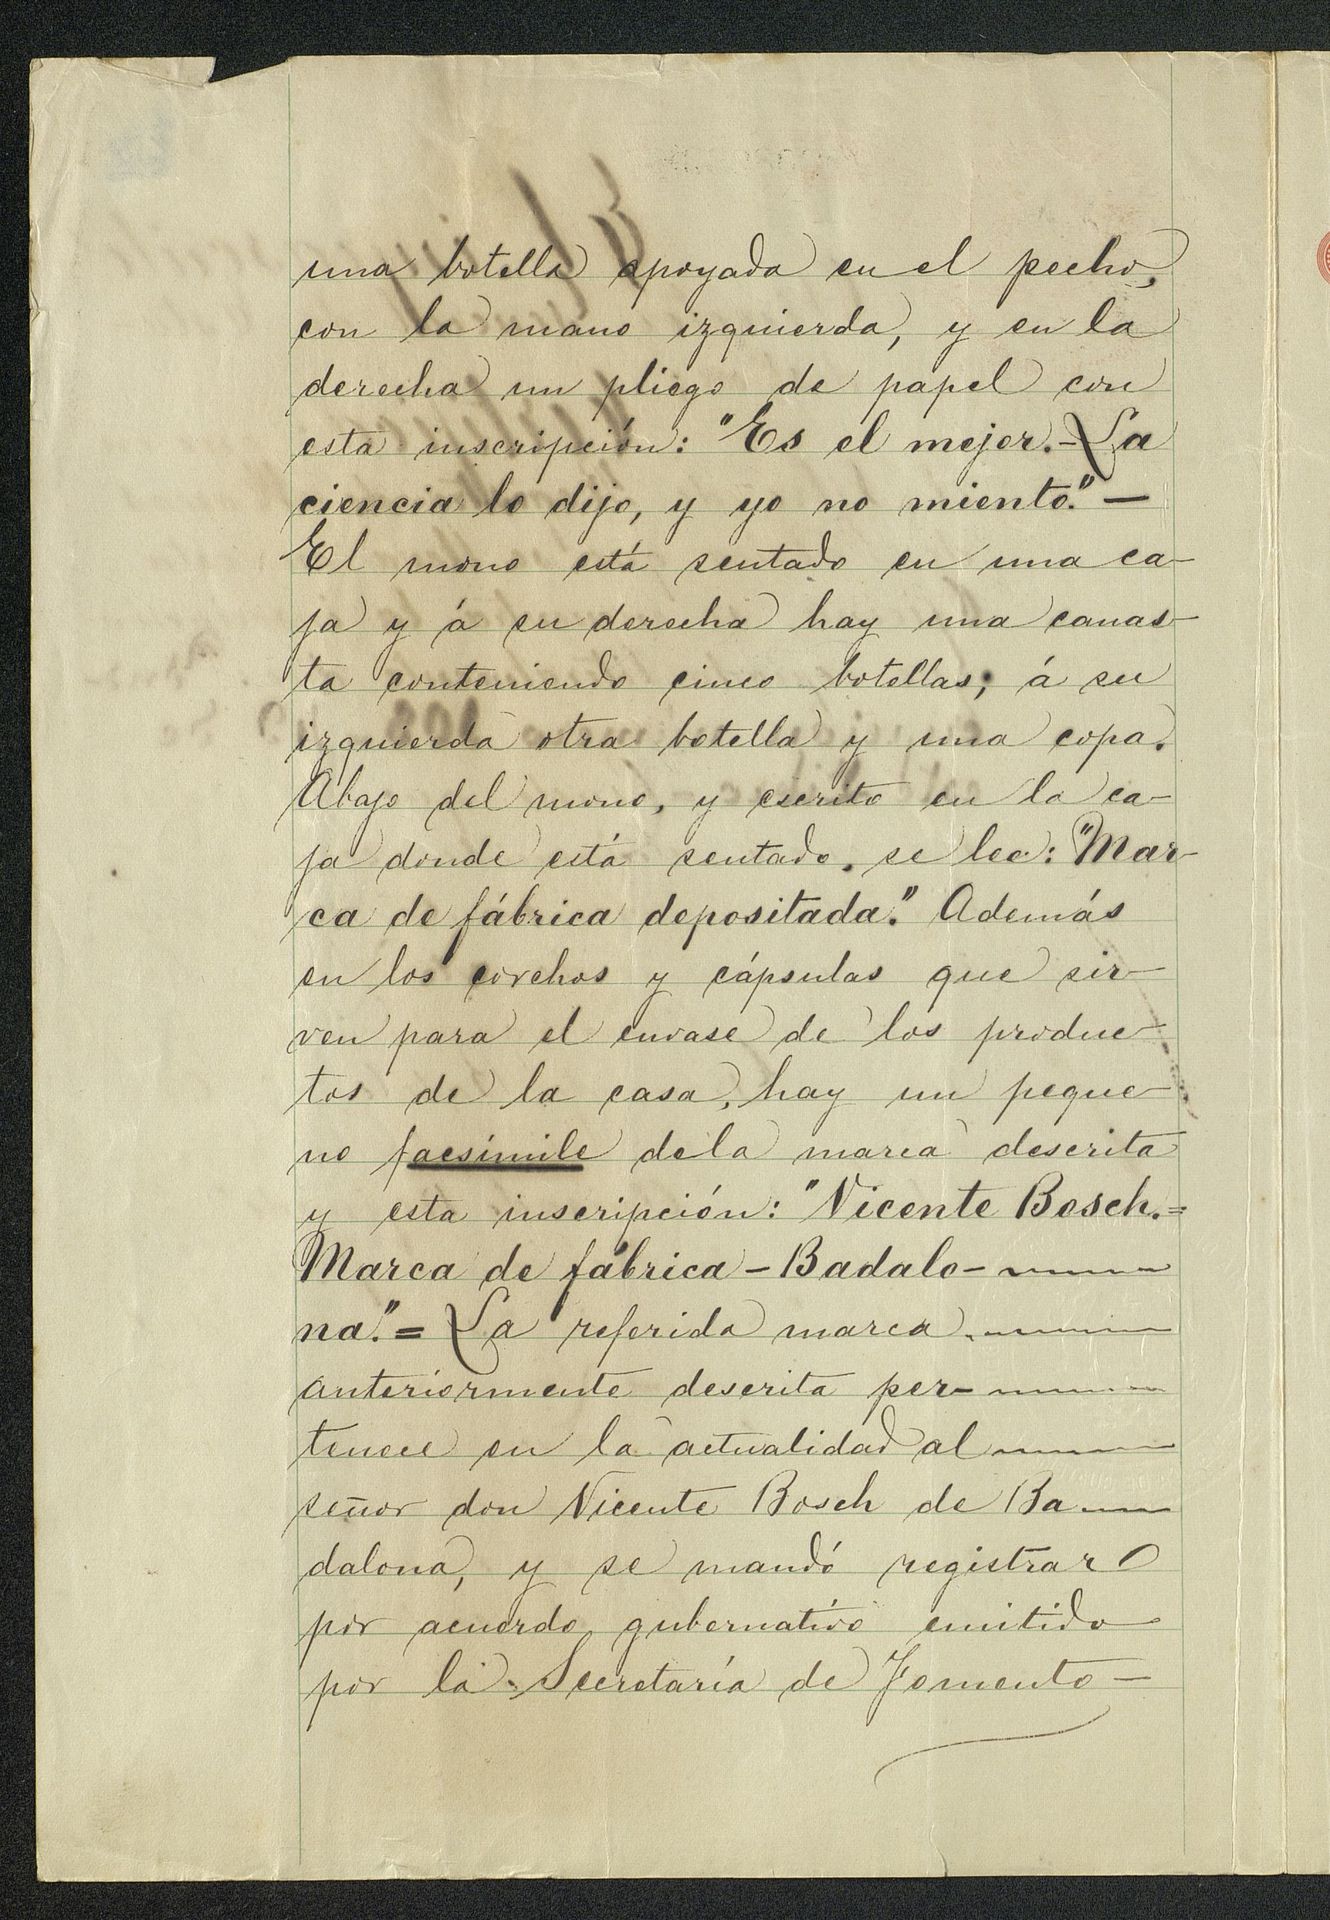 una botella apoyada en el pecho,
con la mano izquierda, y en la
derecha un pliego de papel con
esta inscripción: "Es el mejor.- La
ciencia lo dijo, y yo no miento." —
El mono está sentado en una ca-
ja y á su derecha hay una canas-
ta conteniendo cinco botellas; á su
izquierda otra botella y una copa.
Abajo del mono, y escrito en la ca-
ja donde está sentado, se lee: "Mar-
ca de fábrica depositada." Además
en los corchos y cápsulas que sir-
ven para el envase de los produc-
tos de la casa, hay un peque-
no facsímile de la marca descrita
y esta inscripción: "Vicente Bosch.=
Marca de fábrica - Badalo-
na." = La referida marca
anteriormente descrita per-
tenece en la actualidad al
señor don Vicente Bosch de Ba
dalona, y se mandó registrar
por acuerdo gubernativo emitido
por la Secretaría de Fomento —